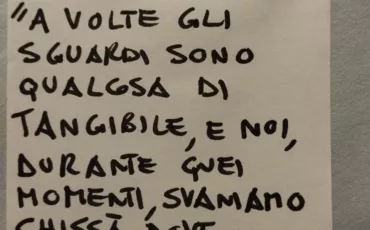 "A VOLTE GLI
SGUARDI SONO
QUALCOSA DI
TANGIBILE, E NOI,
DURANTE QUEI
MOMENTI, SVANIAMO
CHISSÀ DOVE